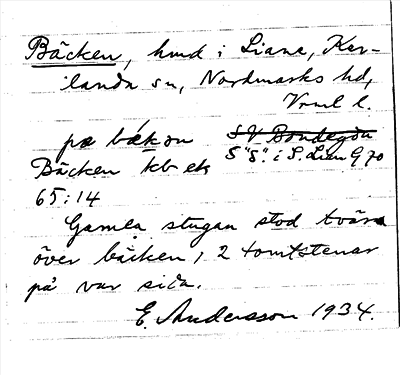 Bäcken, hmd i Liane, Kar-
landa sn, Nordmarks hd,
Vrml l.
pa bækan
S "S". i S. Lian G 70
Bäcken kb etc
65:14
Gamla stugan stod tvärs
över bäcken, 2 tomtstenar
på var sida.
E. Andersson 1934.